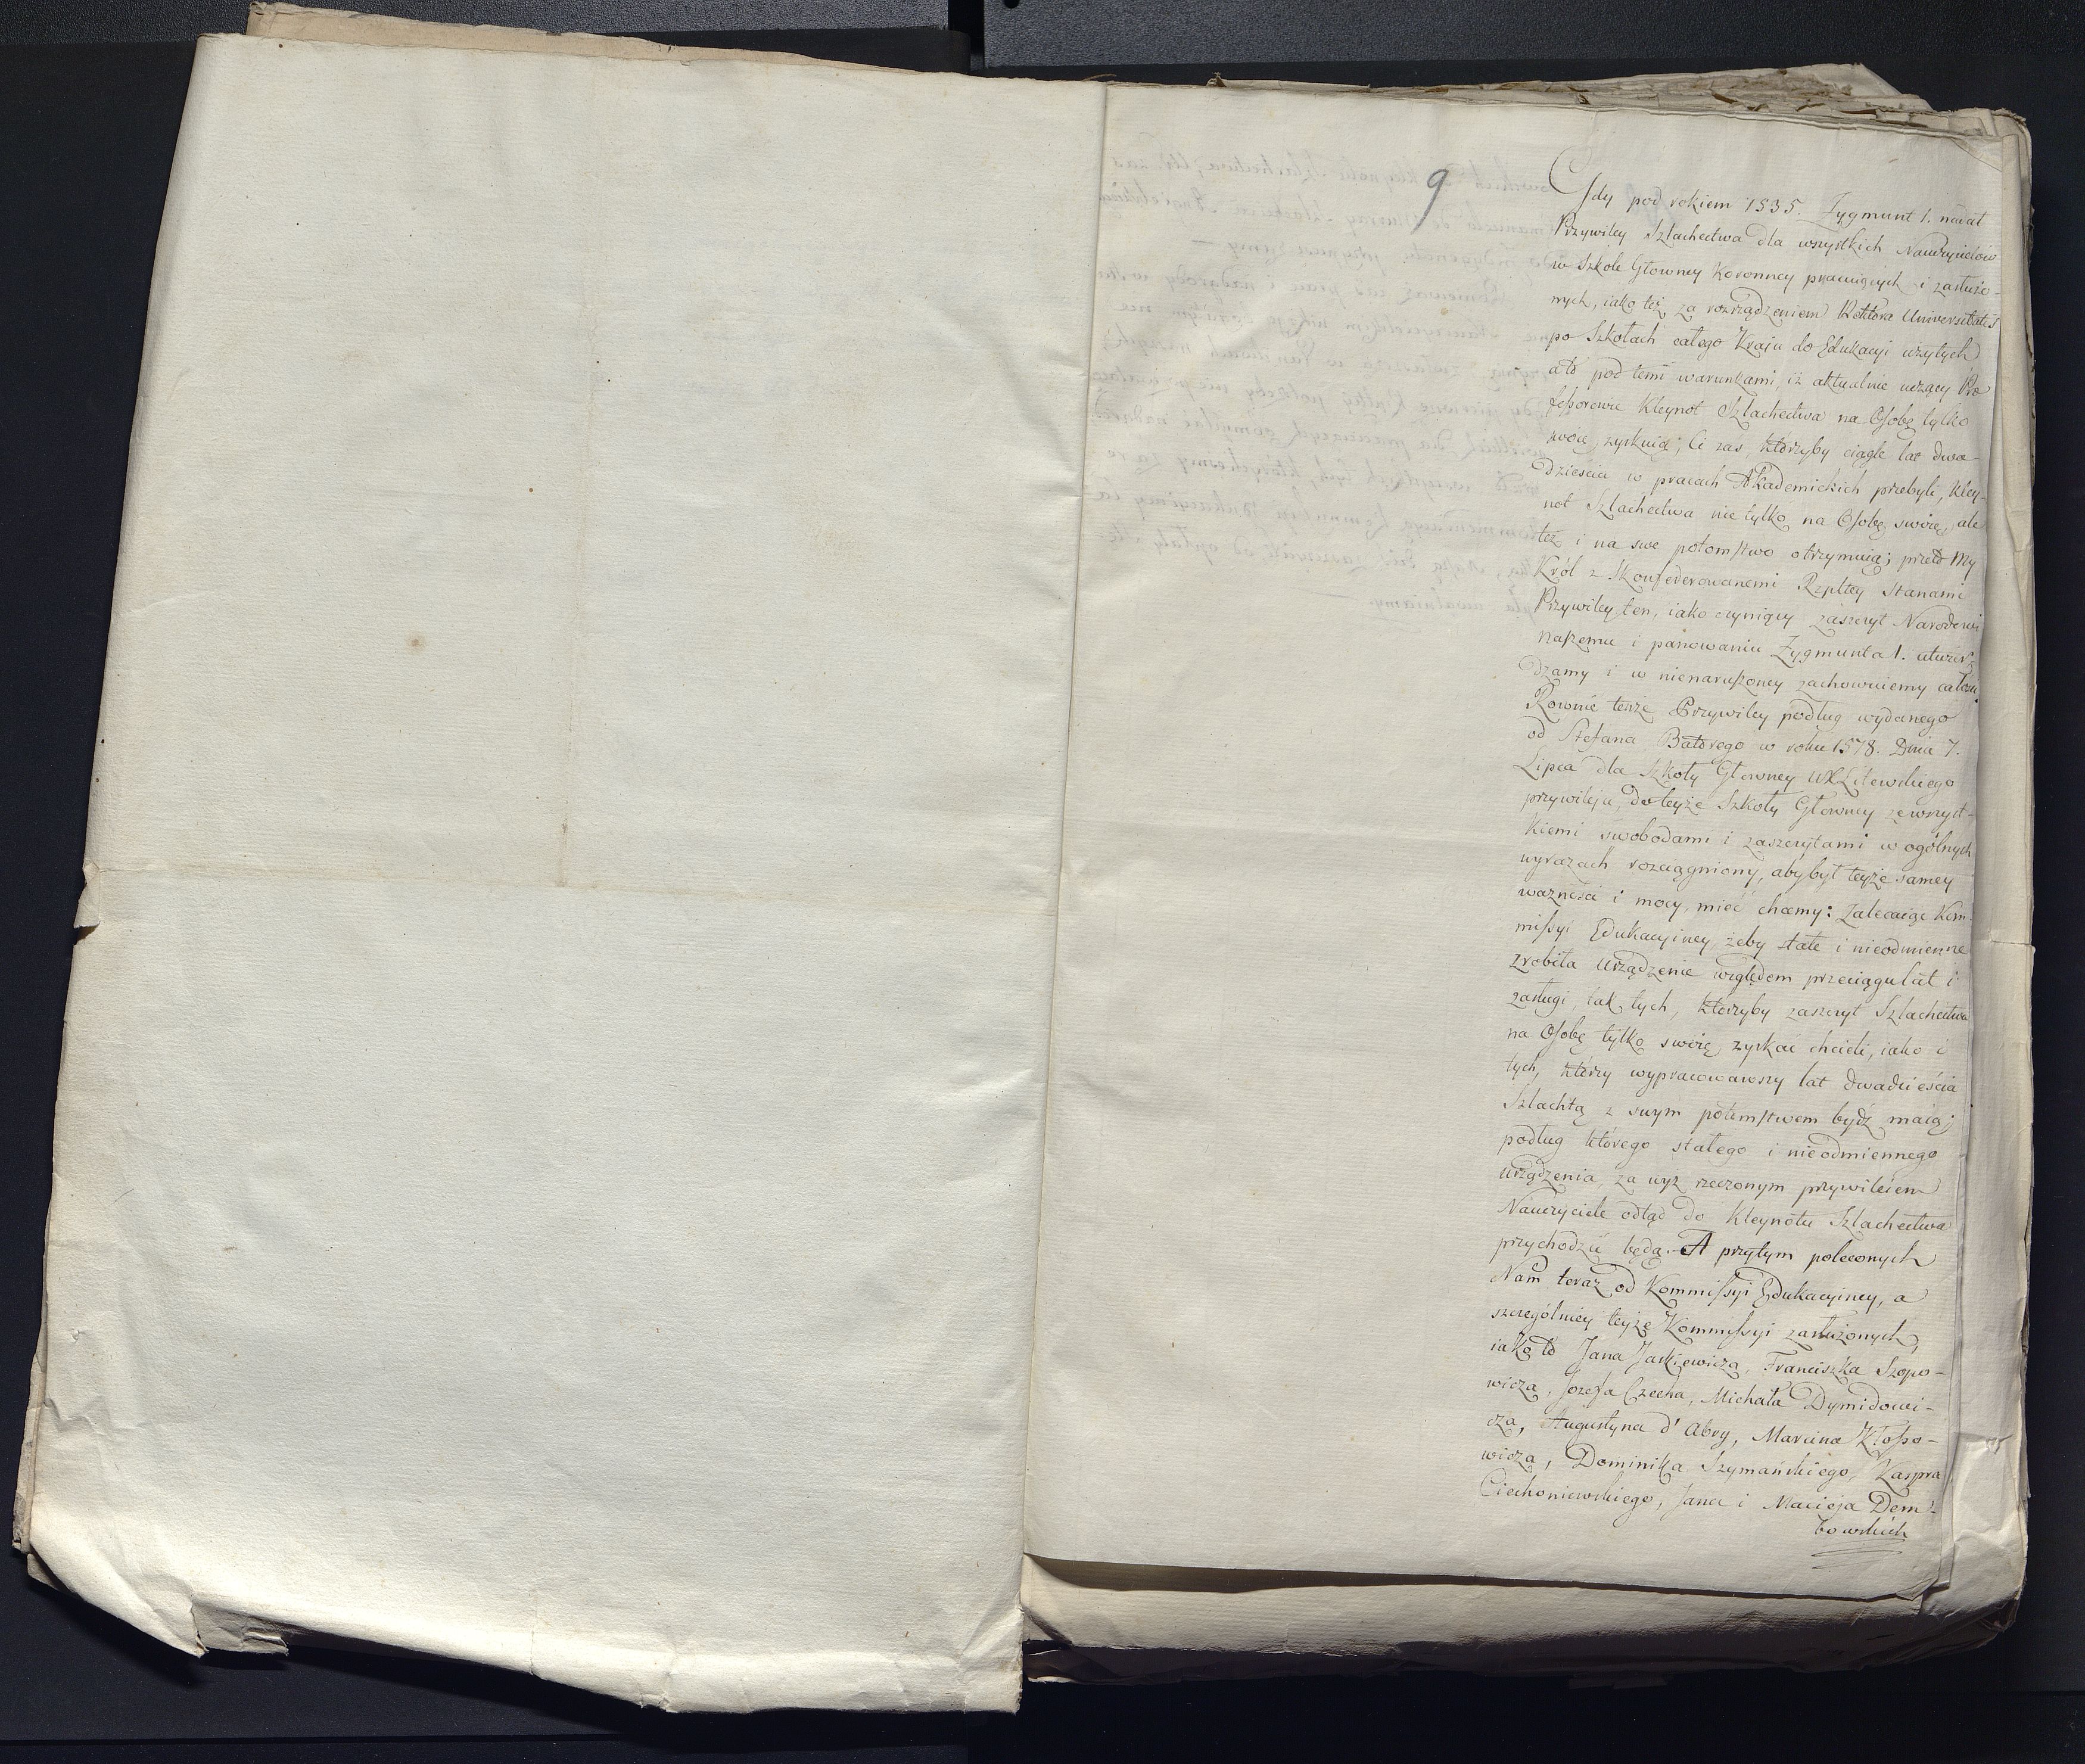 9
Gdy pod rokiem 1535. Zygmunt I. nadał
Przywiley Szlachectwa dla wszystkich Nauczycielów
w Szkole Głowney Koronney pracuiących i zasłużo-
nych, iako też za rozrządzeniem Rektora Universitatis
po Szkołach całego Kraju do Edukacyi użytych
a to pod temi warunkami, iż aktualnie uczący Pro
fessorowie Kleynot Szlachectwa na Osobę tylko
swoię zyskuią; Ci zas, którzyby ciągle lat dwa-
dzieścia w pracach Akademickich przebyli, Kley-
not Szlachectwa nie tylko na Osobę swoię, ale
też i na swe potomstwo otrzymuią; przeto My
Król z Skonfederowanemi Rzpltey Stanami
Przywiley ten, iako czyniący zaszczyt Narodowi
naszemu i panowaniu Zygmunta I. utwier-
dzamy i w nienaruszoney zachowuiemy całości.
Rownie tenże Przywiley podług wydanego
od Stefana Batorego w roku 1578. Dnia 7.
Lipca dla Szkoły Głowney WXLitewskiego
przywileju, do teyże Szkoły Głowney ze wszyst-
kiemi swobodami i zaszczytami w ogólnych
wyrazach rozciągniony, aby był teyże samey
ważności i mocy, mieć chcemy: Zalecaiąc Kom-
missyi Edukacyiney, żeby stałe i nieodmienne
zrobiła Urządzenie względem przeciągu lat i
zasługi, tak tych, którzyby zaszczyt Szlachectwa
na Osobę tylko swoię zyskać chcieli, iako i
tych, którzy wypracowawszy lat dwadzieścia
Szlachtą z swym potomstwem bydź maią;
podług którego stałego i nieodmiennego
urządzenia, za wyż rzeczonym przywileiem
Nauczyciele odtąd do Kleynotu Szlachectwa
przychodzić będą. - A przytym poleconych
Nam teraz od Kommissyi Edukacyiney, a
szczególniey teyże Kommissyi zasłużonych,
iako to Jana Jaśkiewicza, Franciszka Szopo-
wicza, Jozefa Czecha, Michała Dymidowi-
cza, Augustyna d'Abry, Marcina Kłosso-
wicza, Dominika Szymańskiego, Kaspra
Ciechoniewskiego, Jana i Macieja Dem-
bowskich